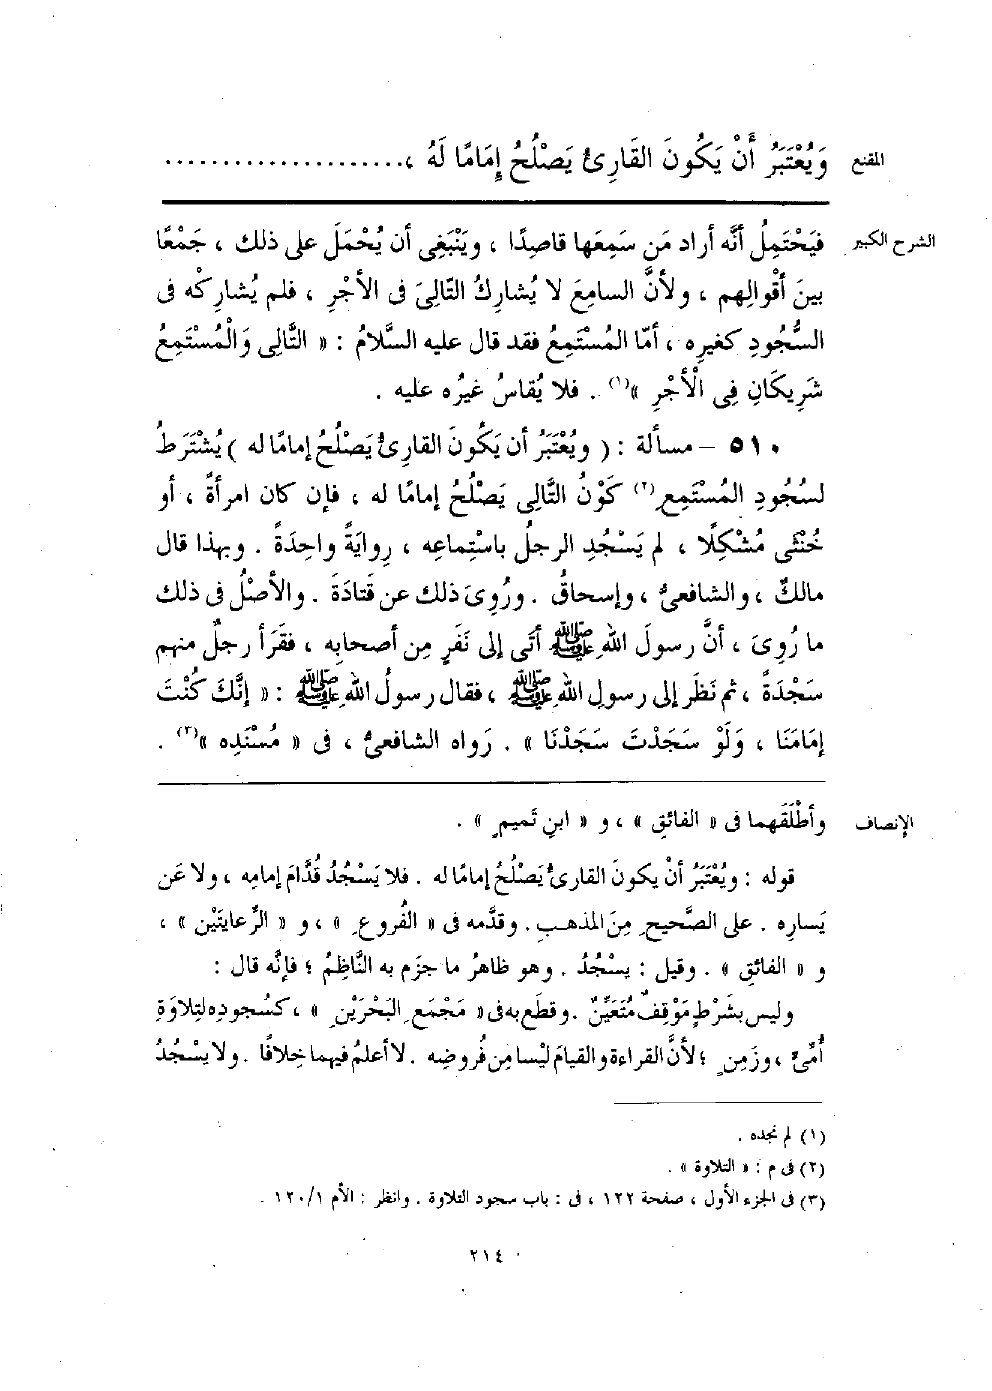 المقنع وَيُعْتَبَرُ أَنْ يَكُونَ القَارِئُ يَصْلُحُ إِمَامًا لَهُ ، .....................
الشرح الكبير فيَحْتَمِلُ أنَّه أراد مَن سَمِعَها قاصِدًا ، ويَنْبَغِى أن يُحْمَلَ على ذلك ، جَمْعًا
بينَ أقْوالِهم ، ولأنَّ السامِعَ لا يُشارِكُ التّالِىَ فى الأجْرِ ، فلم يُشارِكْه فى
السُّجُودِ كغيرِه ، أمّا المُسْتَمِعُ فقد قال عليه السَّلامُ : « التَّالِى وَالْمُسْتَمِعُ
شَرِيكَانِ فِى الْأجْرِ »(١) . فلا يُقاسُ غيرُه عليه .
٥١٠ – مسألة : ( ويُعْتَبَرُ أن يَكُونَ القارِئُ يَصْلُحُ إمامًا له ) يُشْتَرَطُ
لسُجُودِ المُسْتَمِعِ(٢) كَوْنُ التَّالِى يَصْلُحُ إمامًا له ، فإن كان امرأةً ، أو
خُنْثَى مُشْكِلًا ، لم يَسْجُدِ الرجلُ باسْتِماعِه ، رِوايَةً واحِدَةً . وبهذا قال
مالكٌ ، والشافعىُّ ، وإسحاقُ . ورُوِىَ ذلك عن قَتادَةَ . والأصْلُ فى ذلك
ما رُوِىَ ، أنَّ رسولَ اللهِ ﷺ أتَى إلى نَفَرٍ مِن أصحابِه ، فقَرَأ رجلٌ منهم
سَجْدَةً ، ثم نَظَر إلى رسولِ اللهِ ﷺ ، فقال رسولُ اللهِ ﷺ : « إنَّكَ كُنْتَ
إمَامَنَا ، وَلَوْ سَجَدْتَ سَجَدْنَا » . رَواه الشافعىُّ ، فى « مُسْنَدِه »(٣) .
الإنصاف وأطْلَقَهما فى « الفائقِ » ، و « ابنِ تَميمٍ » .
قوله : ويُعْتَبَرُ أنْ يكونَ القارئُ يَصْلُحُ إمامًا له . فلا يَسْجُدُ قُدَّامَ إمامِه ، ولا عَن
يَسارِه . على الصَّحيحِ مِنَ المذهبِ . وقدَّمه فى « الفُروعِ » ، و « الرِّعايتَيْن » ،
و « الفائقِ » . وقيل : يسْجُدُ . وهو ظاهرُ ما جزَم به النَّاظِمُ ؛ فإنَّه قال :
وليس بشَرْطٍ مَوْقِفٌ مُتَعَيِّنٌ . وقطَع به فى « مَجْمَعِ البَحْرَيْنِ » ، كسُجودِه لتِلاوَةِ
أُمِّىٍّ ، وزَمِنٍ ؛ لأنَّ القراءةَ والقيامَ ليْسا مِن فُروضِه . لا أعلمُ فيهما خِلافًا . ولا يسْجُدُ
(١) لم نجده .
(٢) فى م : « التلاوة » .
(٣) فى الجزء الأول ، صفحة ١٢٢ ، فى : باب سجود التلاوة . وانظر : الأم ١٢٠/١ .
٢١٤